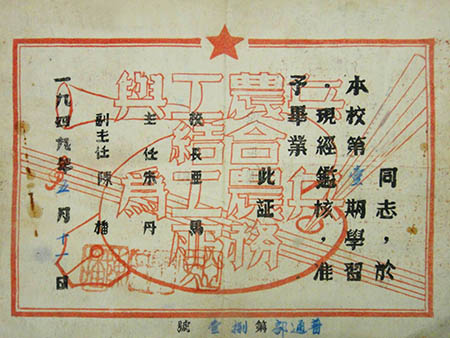 與工農兵
結合
為工農兵
服務
同志，於
本校第壹期學習
，現經鑑核，准
予畢業
此証
校長 亞馬
主任 朱丹
副主任 陳播
一九四九年五月十一日
普通部第捌壹號